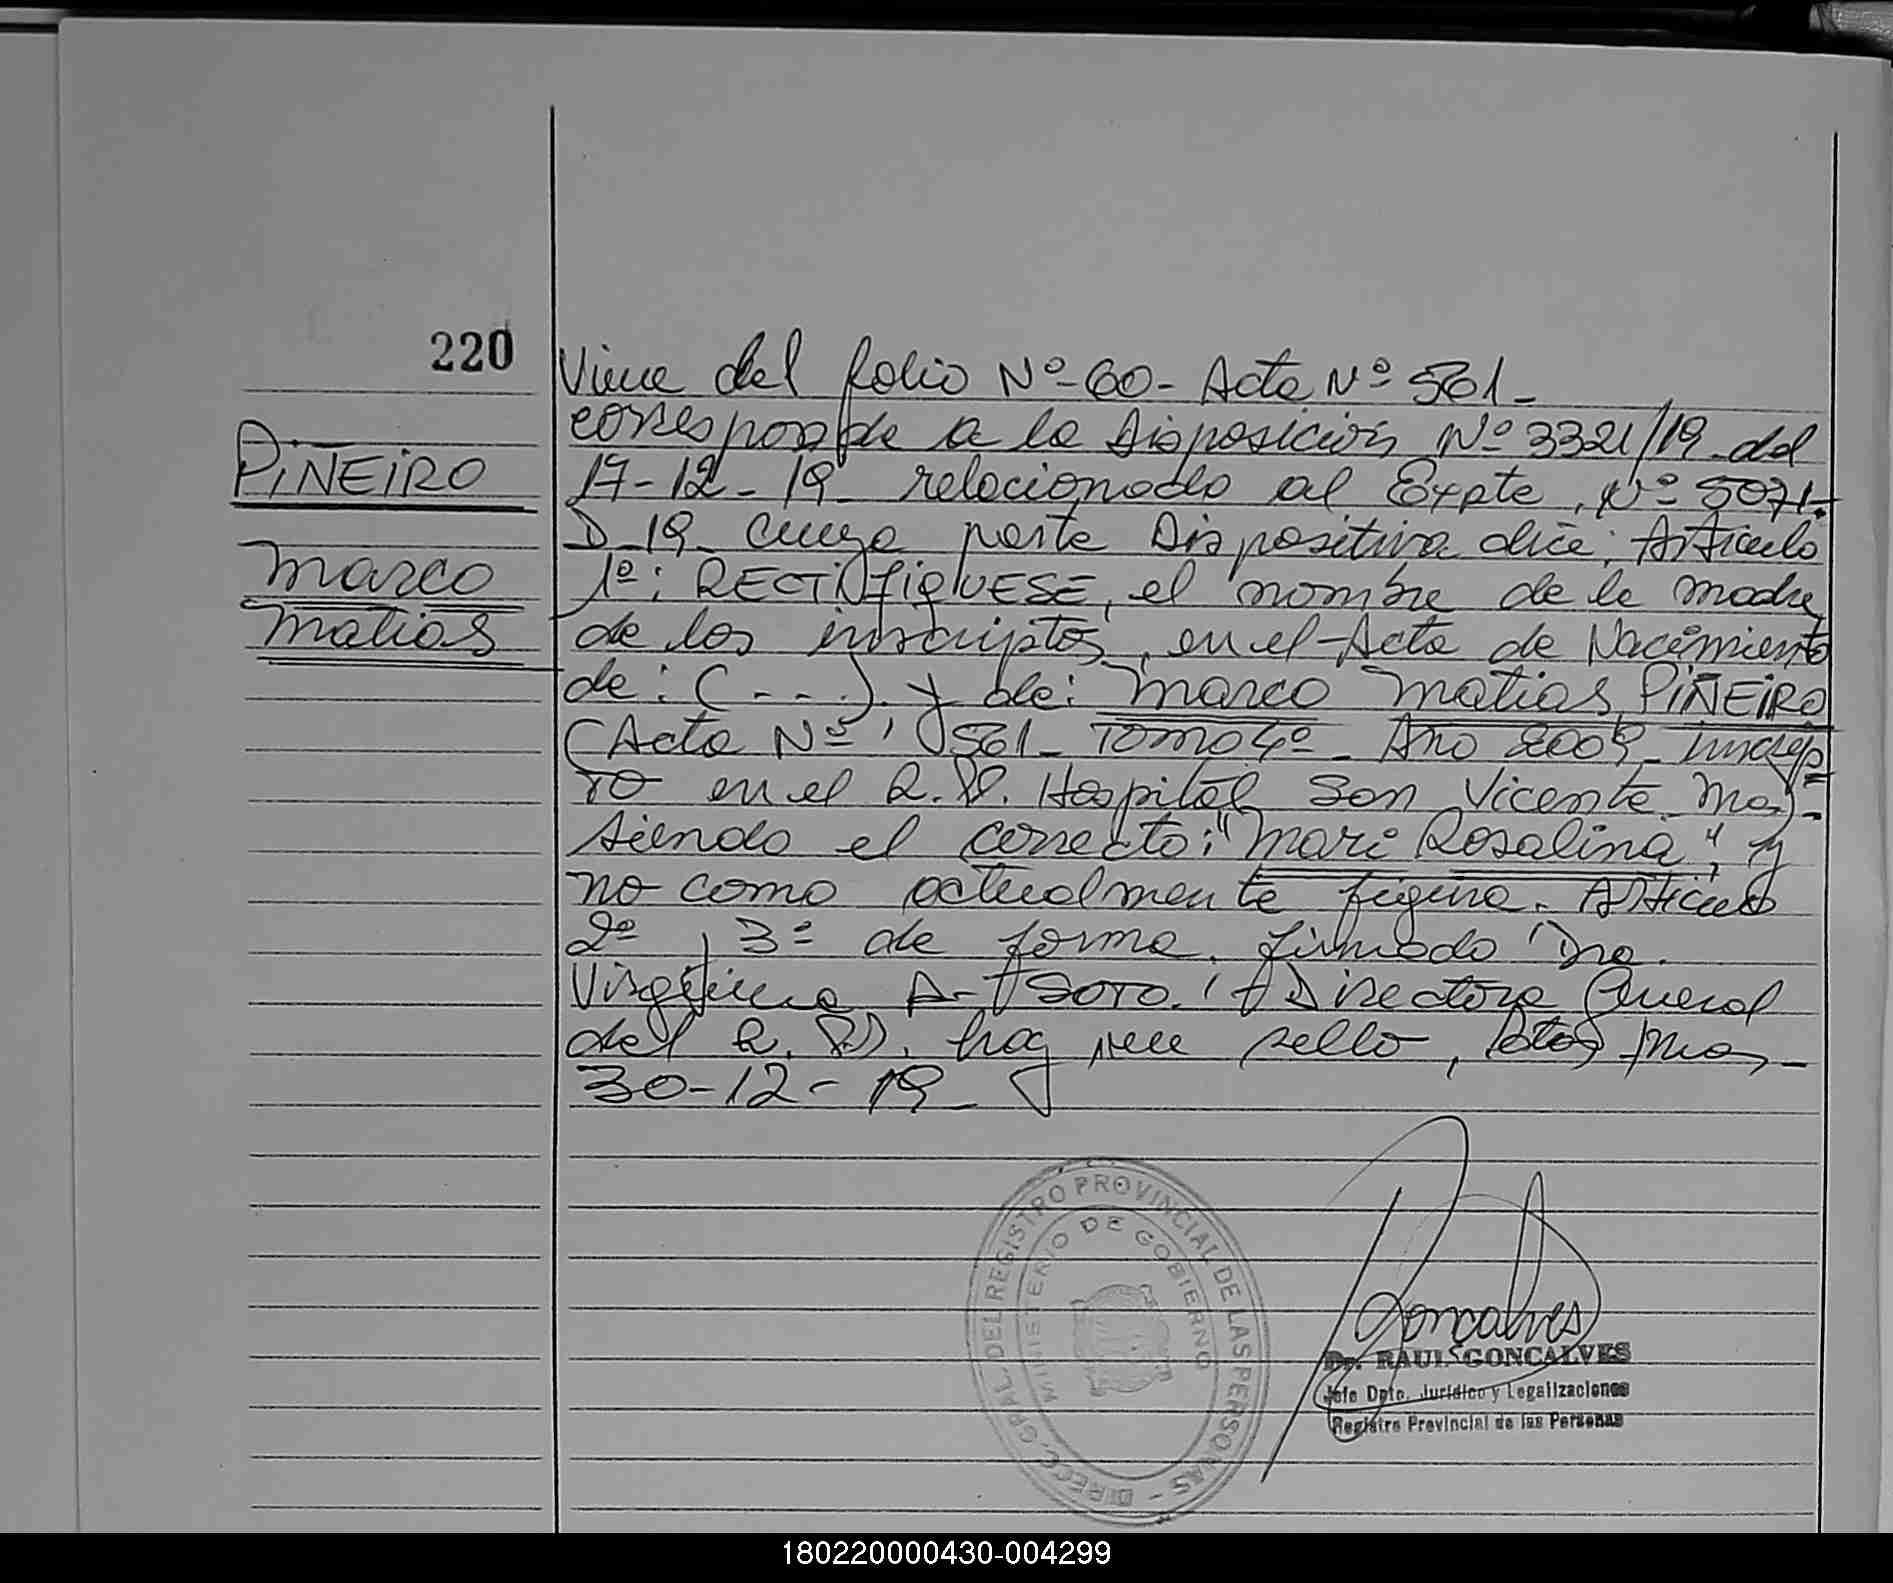 220
Viene del folio Nº-60- Acta Nº 561-
corresponde a la Disposición Nº 3321/19 del
PIÑEIRO
17-12-19- relacionado al Expte. Nº 5071-
D-19- cuya parte Dispositiva dice: Articulo
Marco
1º: RECTIFIQUESE, el nombre de la madre
Matias
de los inscriptos, en el Acta de Nacimiento
de: (---) y de: Marco Matias PIÑEIRO
(Acta Nº 561- Tomo 4º- Año 2009- inscrip
to en el R.P. Hospital San Vicente
siendo el correcto: "Mari Rosalina", y
no como actualmente figura. Articulo
2º, 3º de forma. firmado Dra.
Virginia A. SOTO. Directora General
del R.P. hay un sello,
30-12-19-
DIREC. GRAL. DEL REGISTRO PROVINCIAL DE LAS PERSONAS -
MINISTERIO DE GOBIERNO
Goncalves
Dr. RAUL GONCALVES
Jefe Dpto. Jurídico y Legalizaciones
Registro Provincial de las Personas
180220000430-004299